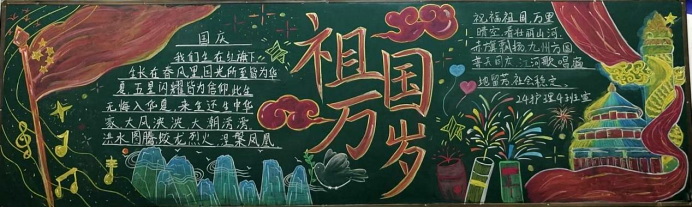 国庆
我们生在红旗下
生长在春风里目光所至皆为华
夏五星闪耀皆为信仰此生
无悔入华夏来生还在中华
家大风泱泱大潮滂滂
洪水图腾蛟龙烈火涅槃凤凰
祖国
万岁
祝福祖国万里
晴空,看壮丽山河
赤旗飘扬九州方圆
普天同庆江河歌唱盛
地留芳社会稳定。
24护理4班宣